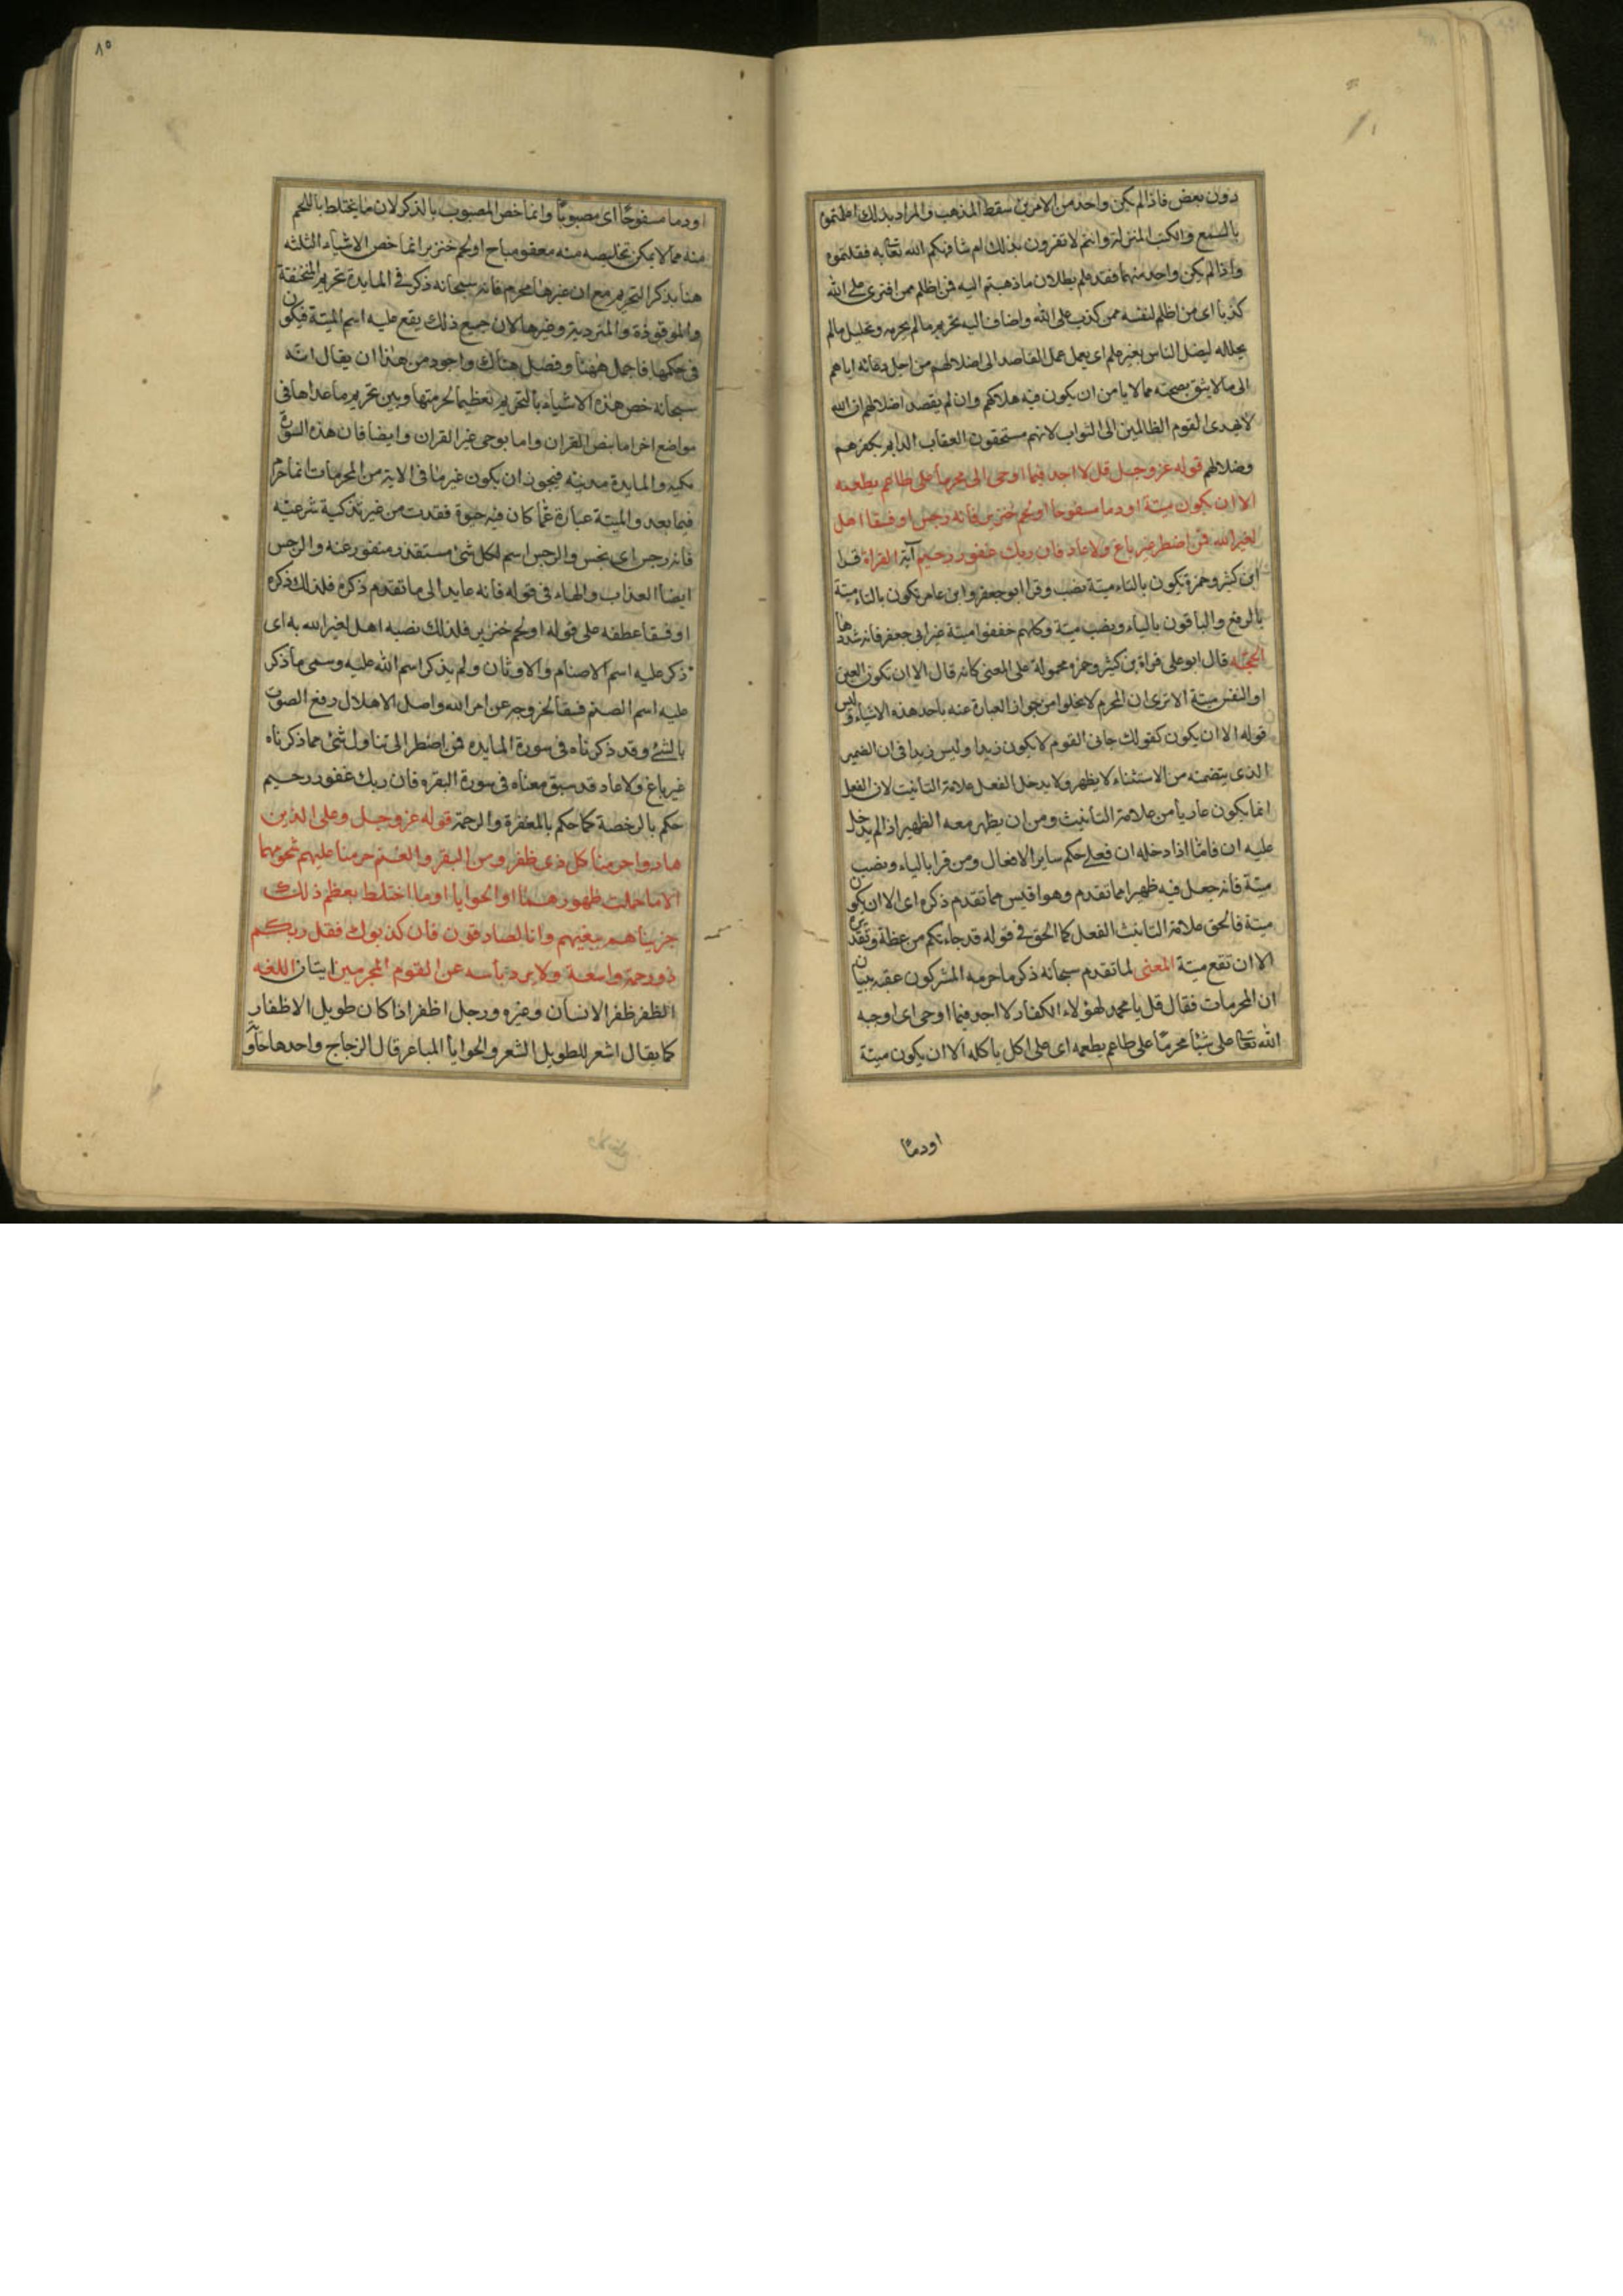 دون بعض فاذا لم يكن واحد من الامرين سقط المذهب والمراد بذلك اعلمتموه
بالسمع والكتب المنزلة وانتم لا تقرون بذلك ام شافهكم الله تعالى به فقلتموه
واذا لم يكن واحد منهما فقد علم بطلان ما ذهبتم اليه فمن اظلم ممن افترى على الله
كذبا اى من اظلم لنفسه ممن كذب على الله واضاف اليه تحريم ما لم يحرمه وتحليل ما لم
يحلله ليضل الناس بغير علم اى يعمل عمل القاصد الى اضلالهم من اجل دعائه اياهم
الى ما لا يثق بصحته مما لا يامن ان يكون فيه هلاكهم وان لم يقصد اضلالهم ان الله
لا يهدى القوم الظالمين الى الثواب لانهم مستحقون العقاب الدايم بكفرهم
وضلالهم قوله عز وجل قل لا اجد فيما اوحى الى محرما على طاعم يطعمه
الا ان يكون ميتة او دما مسفوحا او لحم خنزير فانه رجس او فسقا اهل
لغير الله فمن اضطر غير باغ ولا عاد فان ربك غفور رحيم آية القراة قرا
ابن كثير وحمزة تكون بالتاء ميتة نصب وقرا ابو جعفر وابن عامر تكون بالتاء ميتة
بالرفع والباقون بالياء ونصب ميتة وكلهم خففوا ميتة غير ابى جعفر فانه شددها
الحجة قال ابو على قراة بن كثير وحمزه محمولة على المعنى كانه قال الا ان تكون العين
او النفس ميتة الا ترى ان المحرم لا يخلوا من جواز العبارة عنه باحد هذه الاشياء وليس
قوله الا ان يكون كقولك جانى القوم لا يكون زيدا وليس زيدا فى ان الضمير
الذى يتضمنه من الاستثناء لا يظهر ولا يدخل الفعل علامة التانيث لان الفعل
انما يكون عاريا من علامة التانيث ومن ان يظهر معه الظهير اذا لم يدخل
عليه ان فامّا اذا دخله ان فعلى حكم ساير الافعال ومن قرا بالياء ونصب
ميتة فانه جعل فيه ظهيرا مما تقدم وهو اقيس مما تقدم ذكره اى الا ان يكون
ميتة فالحق علامة التانيث الفعل كما الحق فى قوله قد جاءتكم موعظة وتقديره
الا ان تقع ميتة المعنى لما تقدم سبحانه ذكر ما حرمه المشركون عقبه ببيان
ان المحرمات فقال قل يا محمد لهؤلاء الكفار لا اجد فيما اوحى اى اوحيه
الله تعالى على شيئا محرمًا على طاعم يطعمه اى على اكل ياكله الا ان يكون ميتة
او دمًا
٨٥
او دما مسفوحًا اى مصبوبًا وانما خص المصبوب بالذكر لان ما يختلط باللحم
منه مما لا يمكن تخليصه منه معفو مباح او لحم خنزير انما خص الاشياء الثلثه
هنا بذكر التحريم مع ان غيرها محرم فانه سبحانه ذكر فى المايدة تحريم المنخنقة
والموقوذة والمتردية وغيرها لان جميع ذلك يقع عليه اسم الميتة فيكون
فى حكمها فاجمل ههنا وفصل هناك واجود من هذا ان يقال انّه
سبحانه خص هذه الاشياء بالتحريم تعظيما لحرمتها وبين تحريم ما عداها فى
مواضع اخر اما بنص القران واما بوحى غير القران وايضا فان هذه السورة
مكيه والمايدة مدنيه فيجوز ان يكون غير ما فى الاية من المحرمات انما حرم
فيما بعد والميتة عبارة عما كان فيه حيوة فقدت من غير تذكية شرعيّه
فانه رجس اى نجس والرجس اسم لكل شئ مستقذر منفور عنه والرجس
ايضا العذاب والهاء فى قوله فانه عايد الى ما تقدم ذكره فلذلك ذكره
او فسقا عطفه على قوله او لحم خنزير فلذلك نصبه اهل لغير الله به اى
ذكر عليه اسم الاصنام والاوثان ولم يذكر اسم الله عليه وسمى ما ذكر
عليه اسم الصنم فسقا لخروجه عن امر الله واصل الاهلال رفع الصوت
بالشئ وقد ذكرناه فى سورة المايده فمن اضطر الى تناول شئ مما ذكرناه
غير باغ ولا عاد قد سبق معناه فى سورة البقره فان ربك غفور رحيم
حكم بالرخصة كما حكم بالمغفرة والرحمة قوله عز وجل وعلى الذين
هادوا حرمنا كل ذى ظفر ومن البقر والغنم حرمنا عليهم شحومهما
الا ما حملت ظهورهما او الحوايا او ما اختلط بعظم ذلك
جزيناهم ببغيهم وانا لصادقون فان كذبوك فقل ربكم
ذو رحمة واسعة ولا يرد بأسه عن القوم المجرمين ايتان اللغه
الظفر ظفر الانسان وغيره ورجل اظفر اذا كان طويل الاظفار
كما يقال اشعر للطويل الشعر والحوايا المباعر قال الزجاج واحدها حاوياء